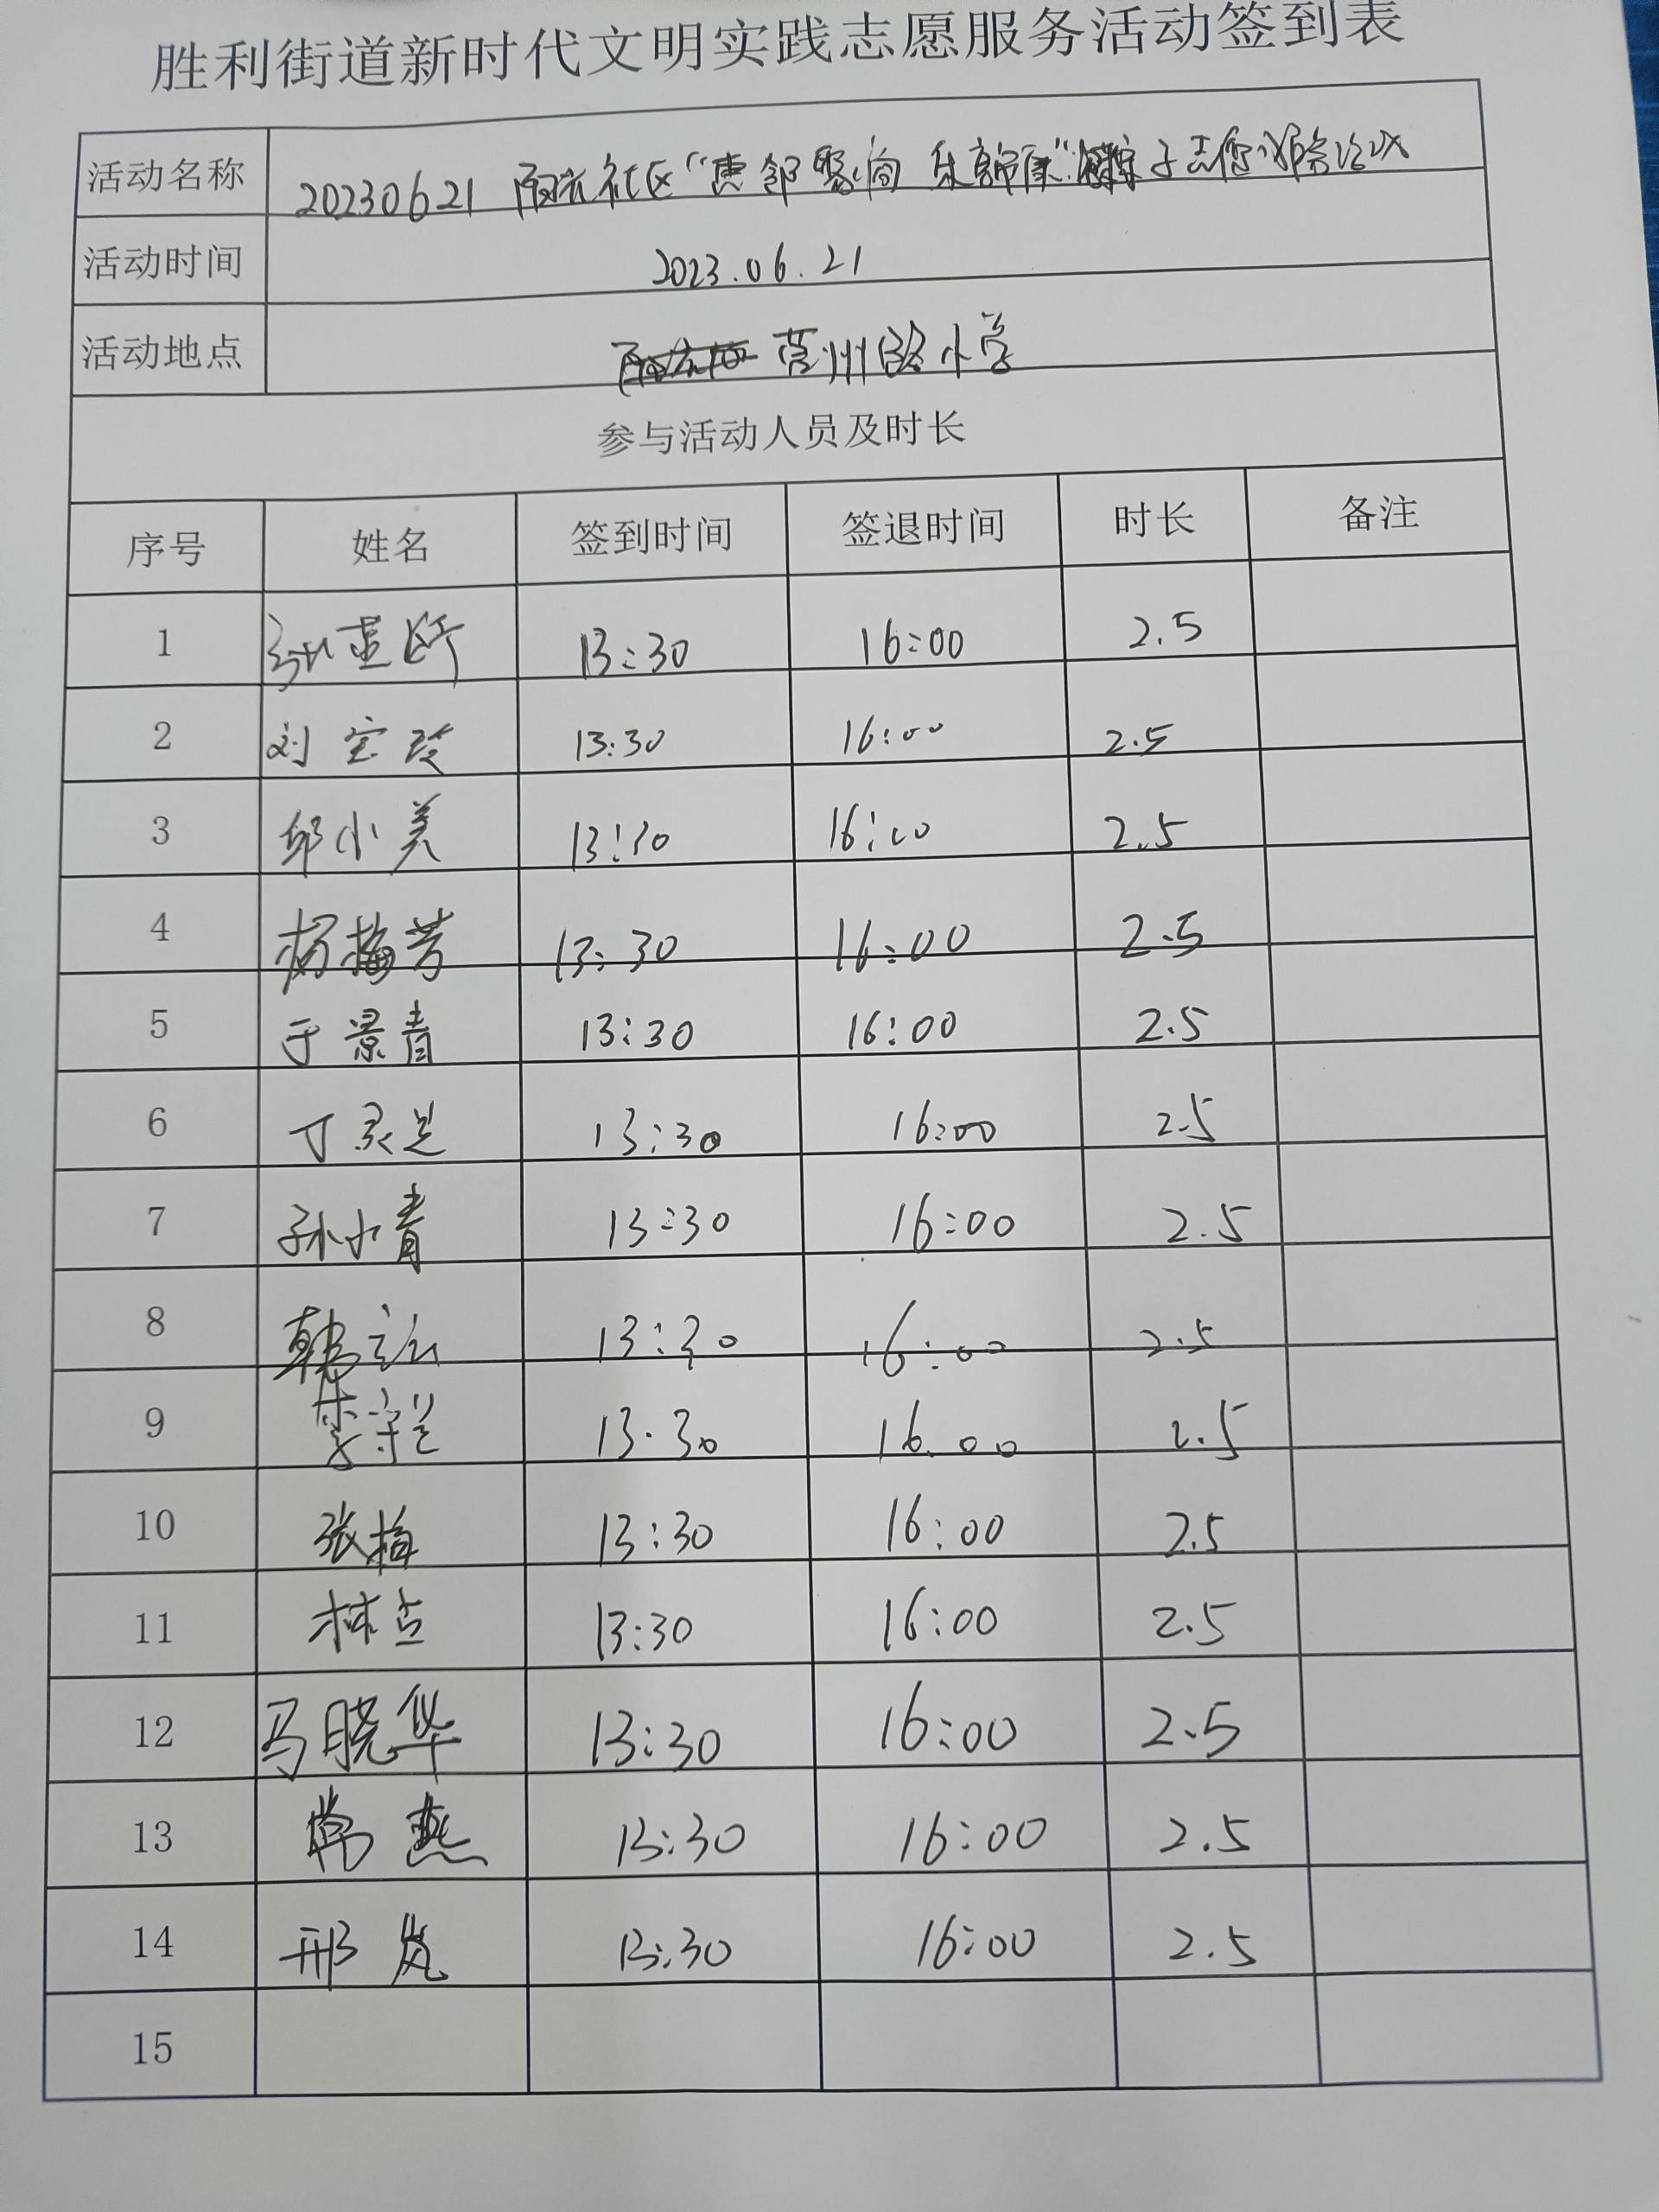 胜利街道新时代文明实践志愿服务活动签到表
活动名称 20230621 社区“惠邻聚向 子志愿服务活动
活动时间 2023.06.21
活动地点 营州路小学
参与活动人员及时长
序号 姓名 签到时间 签退时间 时长 备注
1 13:30 16:00 2.5
2 刘宝 13:30 16:00 2.5
3 邱小美 13:30 16:00 2.5
4 杨梅芳 13:30 16:00 2.5
5 于景青 13:30 16:00 2.5
6 丁灵芝 13:30 16:00 2.5
7 孙小青 13:30 16:00 2.5
8 韩 13:30 16:00 2.5
9 李守兰 13.30 16.00 2.5
10 张梅 13:30 16:00 2.5
11 林 13:30 16:00 2.5
12 马晓华 13:30 16:00 2.5
13 常燕 13:30 16:00 2.5
14 邢岚 13:30 16:00 2.5
15